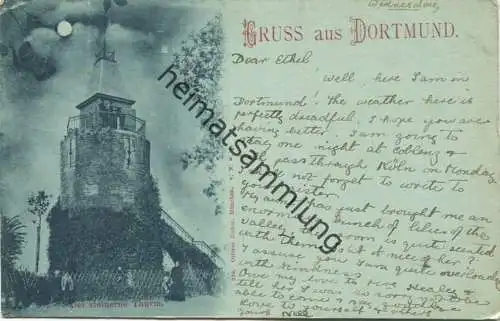 Wednesday
GRUSS aus DORTMUND.
Dear Ethel
Well, here I am in
Dortmund! The weather here is
perfectly dreadful, I hope you are
having better. I am going to
stay one night at Coblenz &
pass through Köln on Monday
not forget to write to
your sister.
just brought me an
enormous bunch of lilies of the
valley room is quite scented
with them is it nice of her?
I assure you I am quite overloaded
with kindness
Give my love to Healey &
tell her I was so sorry to be
able to come & say good-bye
Love to yourself & others
yours Nell
Der steinerne Thurm.
heimatsammlung